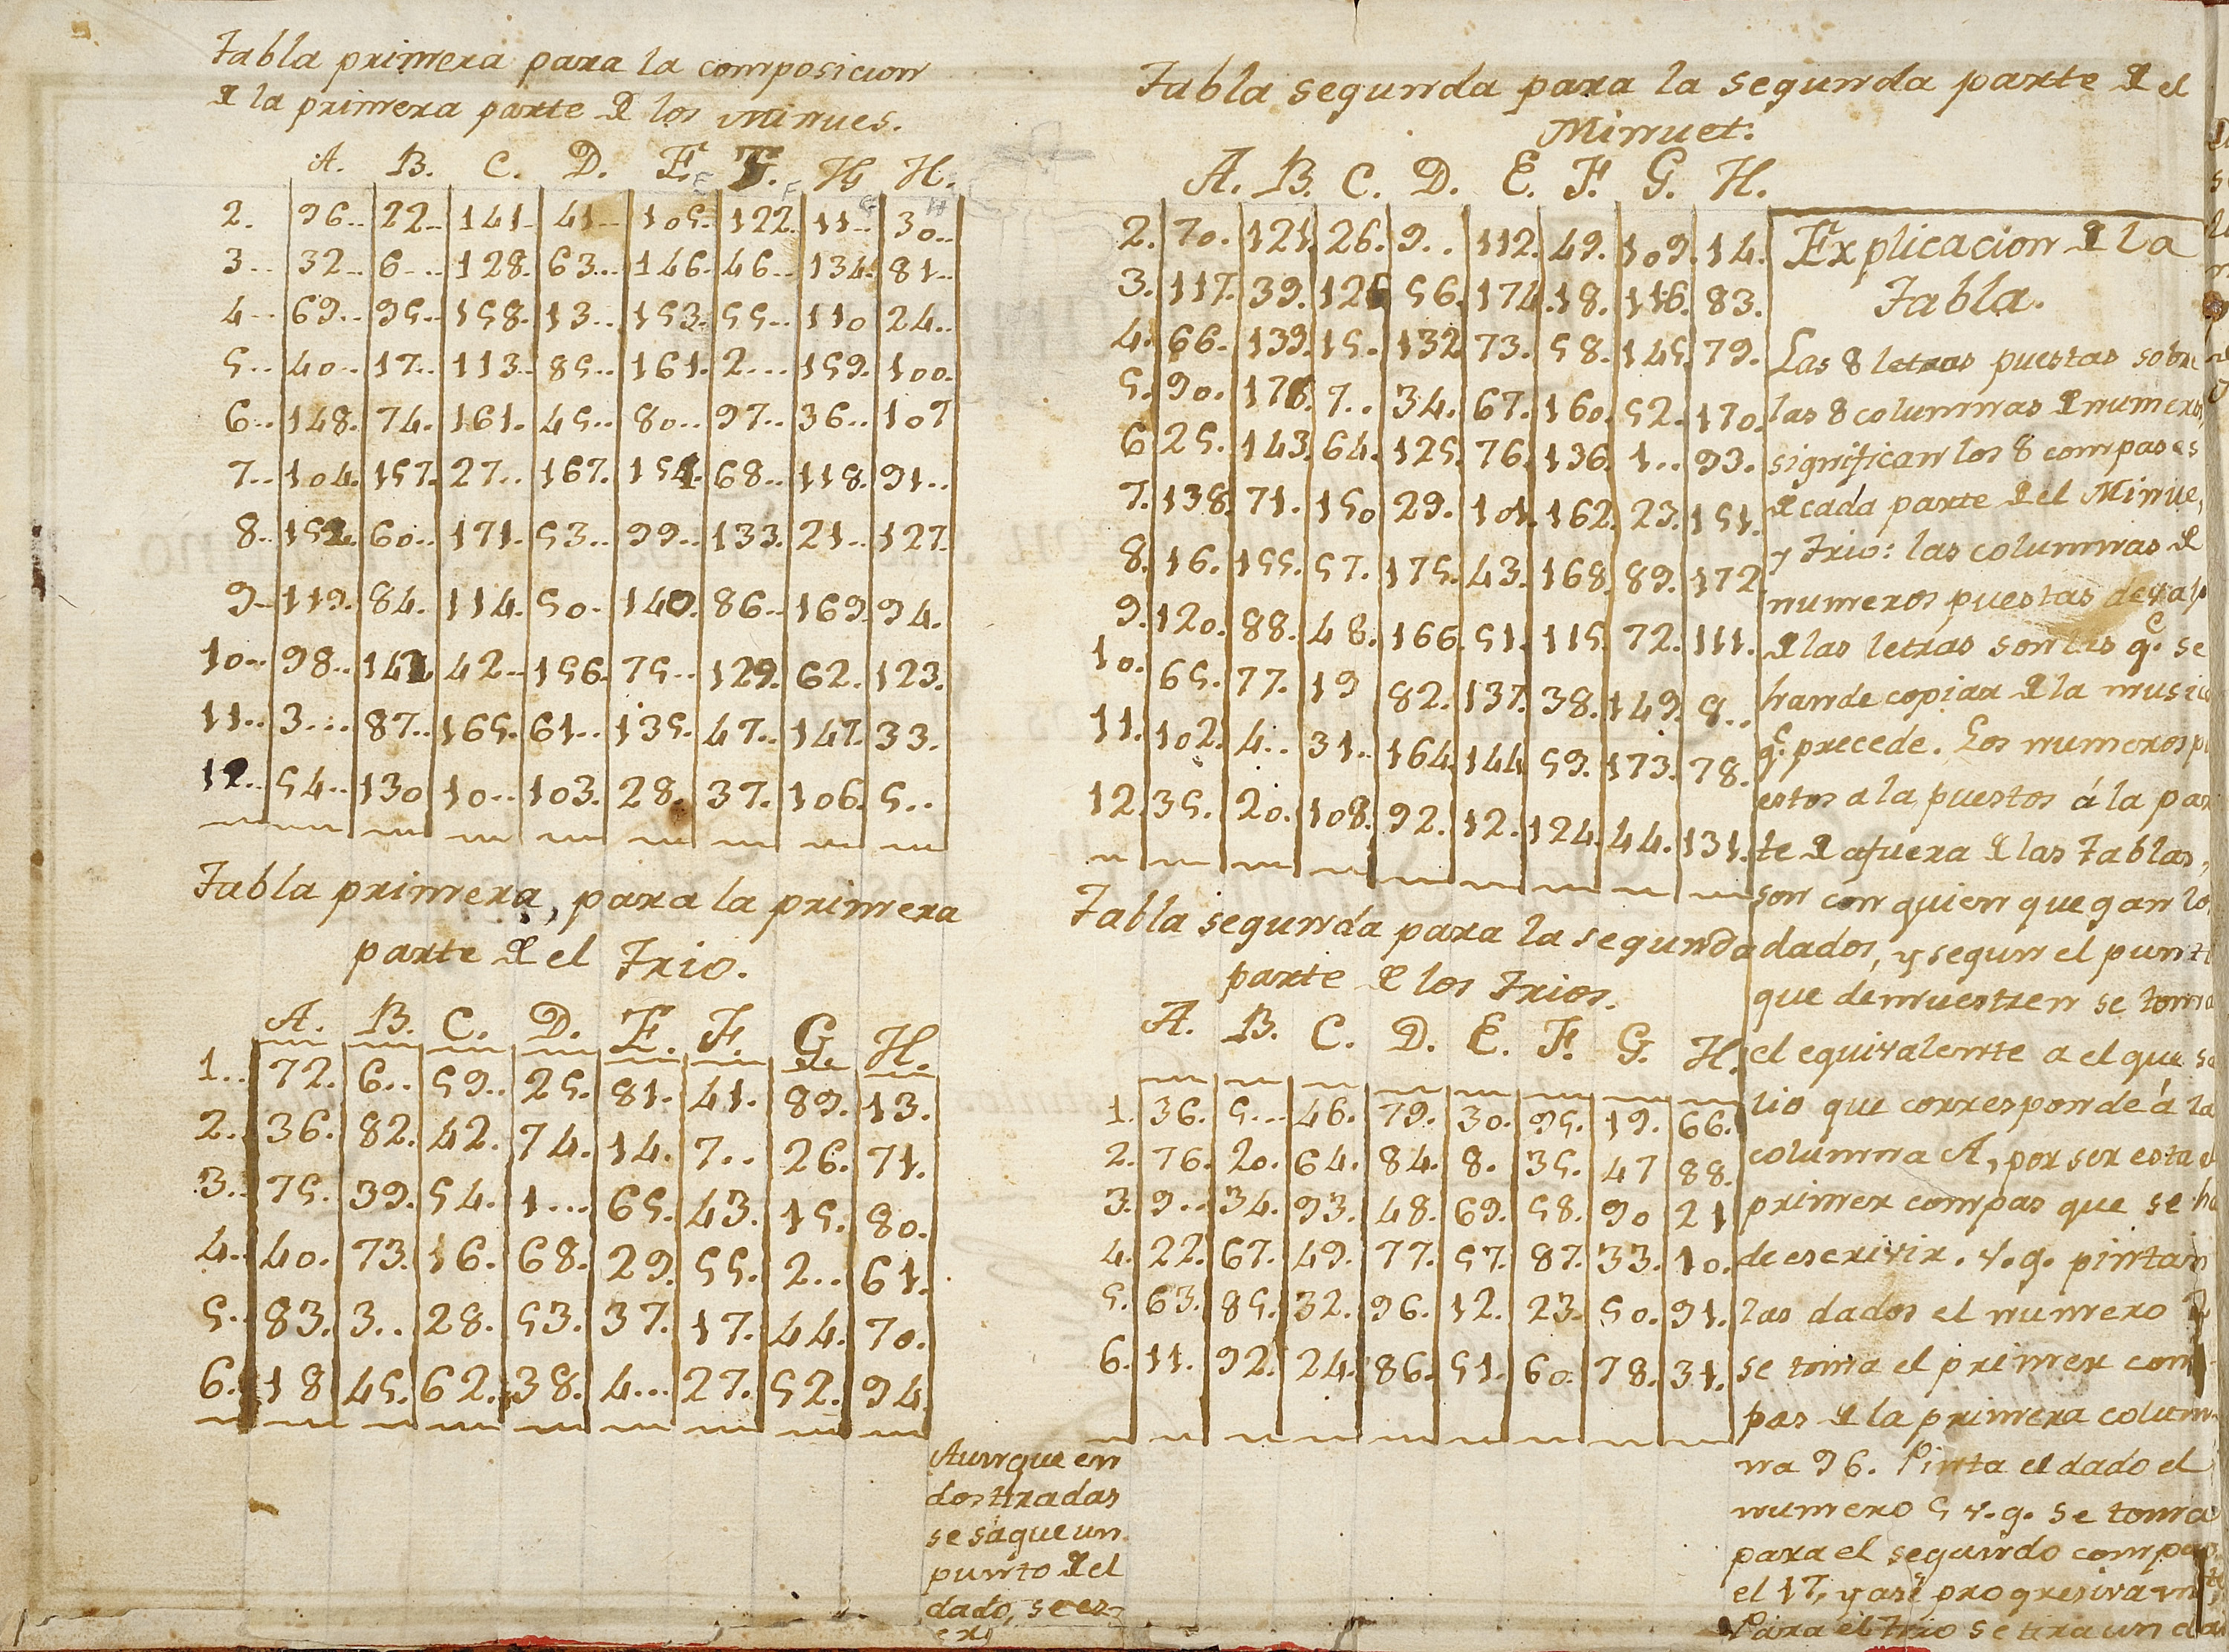 Tabla primera para la composicion
d la primera parte d los minues.
A. B. C. D. E. F. G H.
2. 96.. 22.. 141. 41.. 105. 122. 11.. 30..
3.. 32.. 6... 128. 63.. 146. 46.. 134. 81..
4.. 69.. 95.. 158. 13.. 153. 55.. 110 24..
5.. 40.. 17.. 113.. 85.. 161. 2... 159. 100.
6.. 148. 74. 161. 45.. 80.. 97.. 36.. 107
7.. 104. 157. 27.. 167. 154. 68.. 118. 91..
8.. 152. 60.. 171. 53.. 99.. 133. 21.. 127.
9.. 119. 84. 114. 50. 140. 86.. 169. 94.
10.. 98.. 142 42.. 156. 75.. 129. 62. 123.
11.. 3... 87.. 165. 61.. 135. 47.. 147. 33.
12.. 54.. 130 10.. 103. 28. 37. 106. 5..
Tabla primera, para la primera
parte d el Trio.
A. B. C. D. E. F. G. H.
1.. 72. 6.. 59.. 25. 81. 41. 89. 13.
2.. 36. 82. 42. 74. 14. 7.. 26. 71.
3.. 75. 39. 54. 1... 65. 43. 15. 80.
4.. 40. 73. 16. 68. 29. 55. 2.. 61.
5.. 83. 3.. 28. 53. 37. 17. 44. 70.
6.. 18 45. 62. 38. 4... 27. 52. 94.
Aunque en
dos tiradas
se saque un
punto d el
dado, se es-
Tabla segunda para la segunda parte d el
Minuet.
A. B. C. D. E. F. G. H.
2. 70. 121. 26. 9.. 112. 49. 109. 14.
3. 117. 39. 126 56. 174. 18. 116. 83.
4. 66. 139. 15. 132 73. 58. 145. 79.
5. 90. 176. 7.. 34. 67. 160. 52. 170.
6 25. 143. 64. 125. 76. 136. 1.. 93.
7. 138. 71. 150 29. 101. 162. 23. 151.
8. 16. 155. 57. 175. 43. 168. 89. 172
9. 120. 88. 48. 166. 51. 115. 72. 111.
10. 65. 77. 19 82. 137. 38. 149. 8..
11. 102. 4.. 31.. 164. 144 59. 173. 78.
12. 35. 20. 108. 92. 12. 124. 44. 131.
Tabla segunda para la segunda
parte d los Trios.
A. B. C. D. E. F. G. H.
1. 36. 5... 46. 79. 30. 95. 19. 66.
2. 76. 20. 64. 84. 8. 35. 47 88.
3. 9.. 34. 93. 48. 69. 58. 90 21
4. 22. 67. 49. 77. 57. 87. 33. 10.
5. 63. 85. 32. 96. 12. 23. 50. 91.
6. 11. 92. 24. 86. 51. 60. 78. 31.
Explicacion d la
Tabla.
Las 8 letras puestas sobre
las 8 columnas d numeros,
significan los 8 compases
d cada parte d el Minue,
y Trio: las columnas d
numeros puestas
d las letras son las q.e se
han de copiar d la musica
q.e precede. Los numeros pu
estos a la puestos á la par
te d afuera d las Tablas,
son con quien que gan los
dados, y segun el punto
que demuestren se toma
el equivalente a el que sa
lio que corresponde á la
columna A, por ser esta el
primer compas que se ha
de escrivir. v.g. pintan
las dados el numero 2
se toma el primer com
pas d la primera colum-
na 96. Pinta el dado el
numero 5 v.g. se toma
para el segundo compas
el 17, y asi progresiva
Para el Trio se tira un da